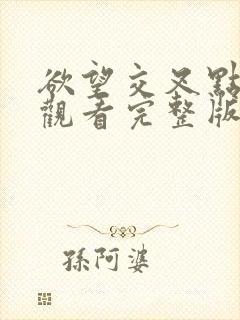 欲望交叉點
觀看完整版
孫阿婆